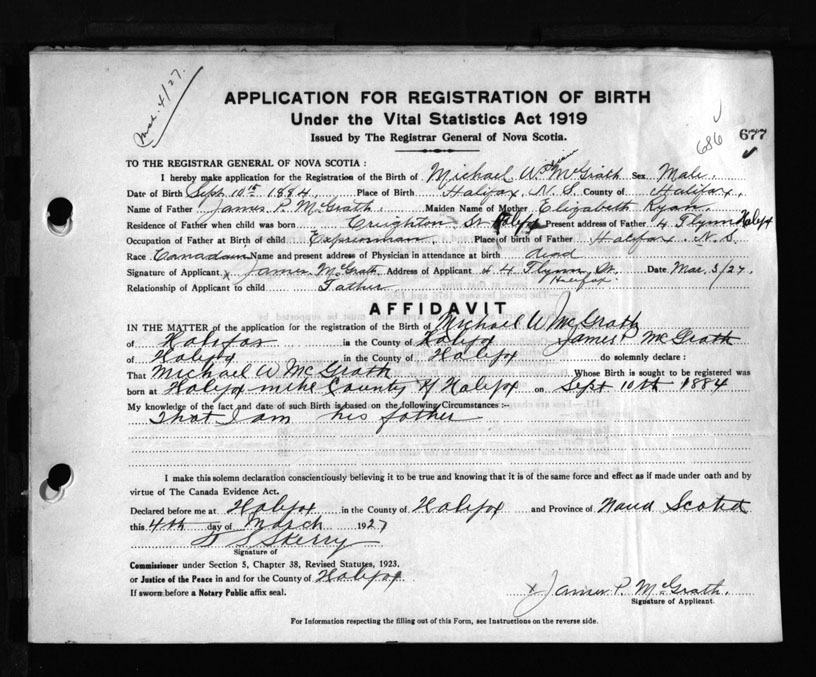 Mar. 4/27.
APPLICATION FOR REGISTRATION OF BIRTH
Under the Vital Statistics Act 1919
Issued by The Registrar General of Nova Scotia.
686 677
TO THE REGISTRAR GENERAL OF NOVA SCOTIA :
I hereby make application for the Registration of the Birth of Michael W. McGrath Sex Male
Date of Birth Sept 10th 1884. Place of Birth Halifax, N. S. County of Halifax.
Name of Father James P. McGrath. Maiden Name of Mother Elizabeth Ryan.
Residence of Father when child was born Creighton St Halifax Present address of Father 4 Flynn Halifax
Occupation of Father at Birth of child Expressman Place of birth of Father Halifax N. S.
Race Canadian Name and present address of Physician in attendance at birth dead
Signature of Applicant x James McGrath Address of Applicant 4 Flynn St. Halifax. Date Mar. 3/27.
Relationship of Applicant to child Father
AFFIDAVIT
IN THE MATTER of the application for the registration of the Birth of Michael W. McGrath
of Halifax in the County of Halifax James P McGrath
of Halifax in the County of Halifax do solemnly declare :
That Michael W McGrath Whose Birth is sought to be registered was
born at Halifax in the County of Halifax on Sept 10th 1884
My knowledge of the fact and date of such Birth is based on the following Circumstances :-
That I am his father
I make this solemn declaration conscientiously believing it to be true and knowing that it is of the same force and effect as if made under oath and by
virtue of The Canada Evidence Act.
Declared before me at Halifax in the County of Halifax and Province of Nova Scotia
this 4th day of March 1927
Skerry
Signature of
Commissioner under Section 5, Chapter 38, Revised Statutes, 1923.
or Justice of the Peace in and for the County of Halifax
If sworn before a Notary Public affix seal.
x James P. McGrath.
Signature of Applicant.
For Information respecting the filling out of this Form, see Instructions on the reverse side.